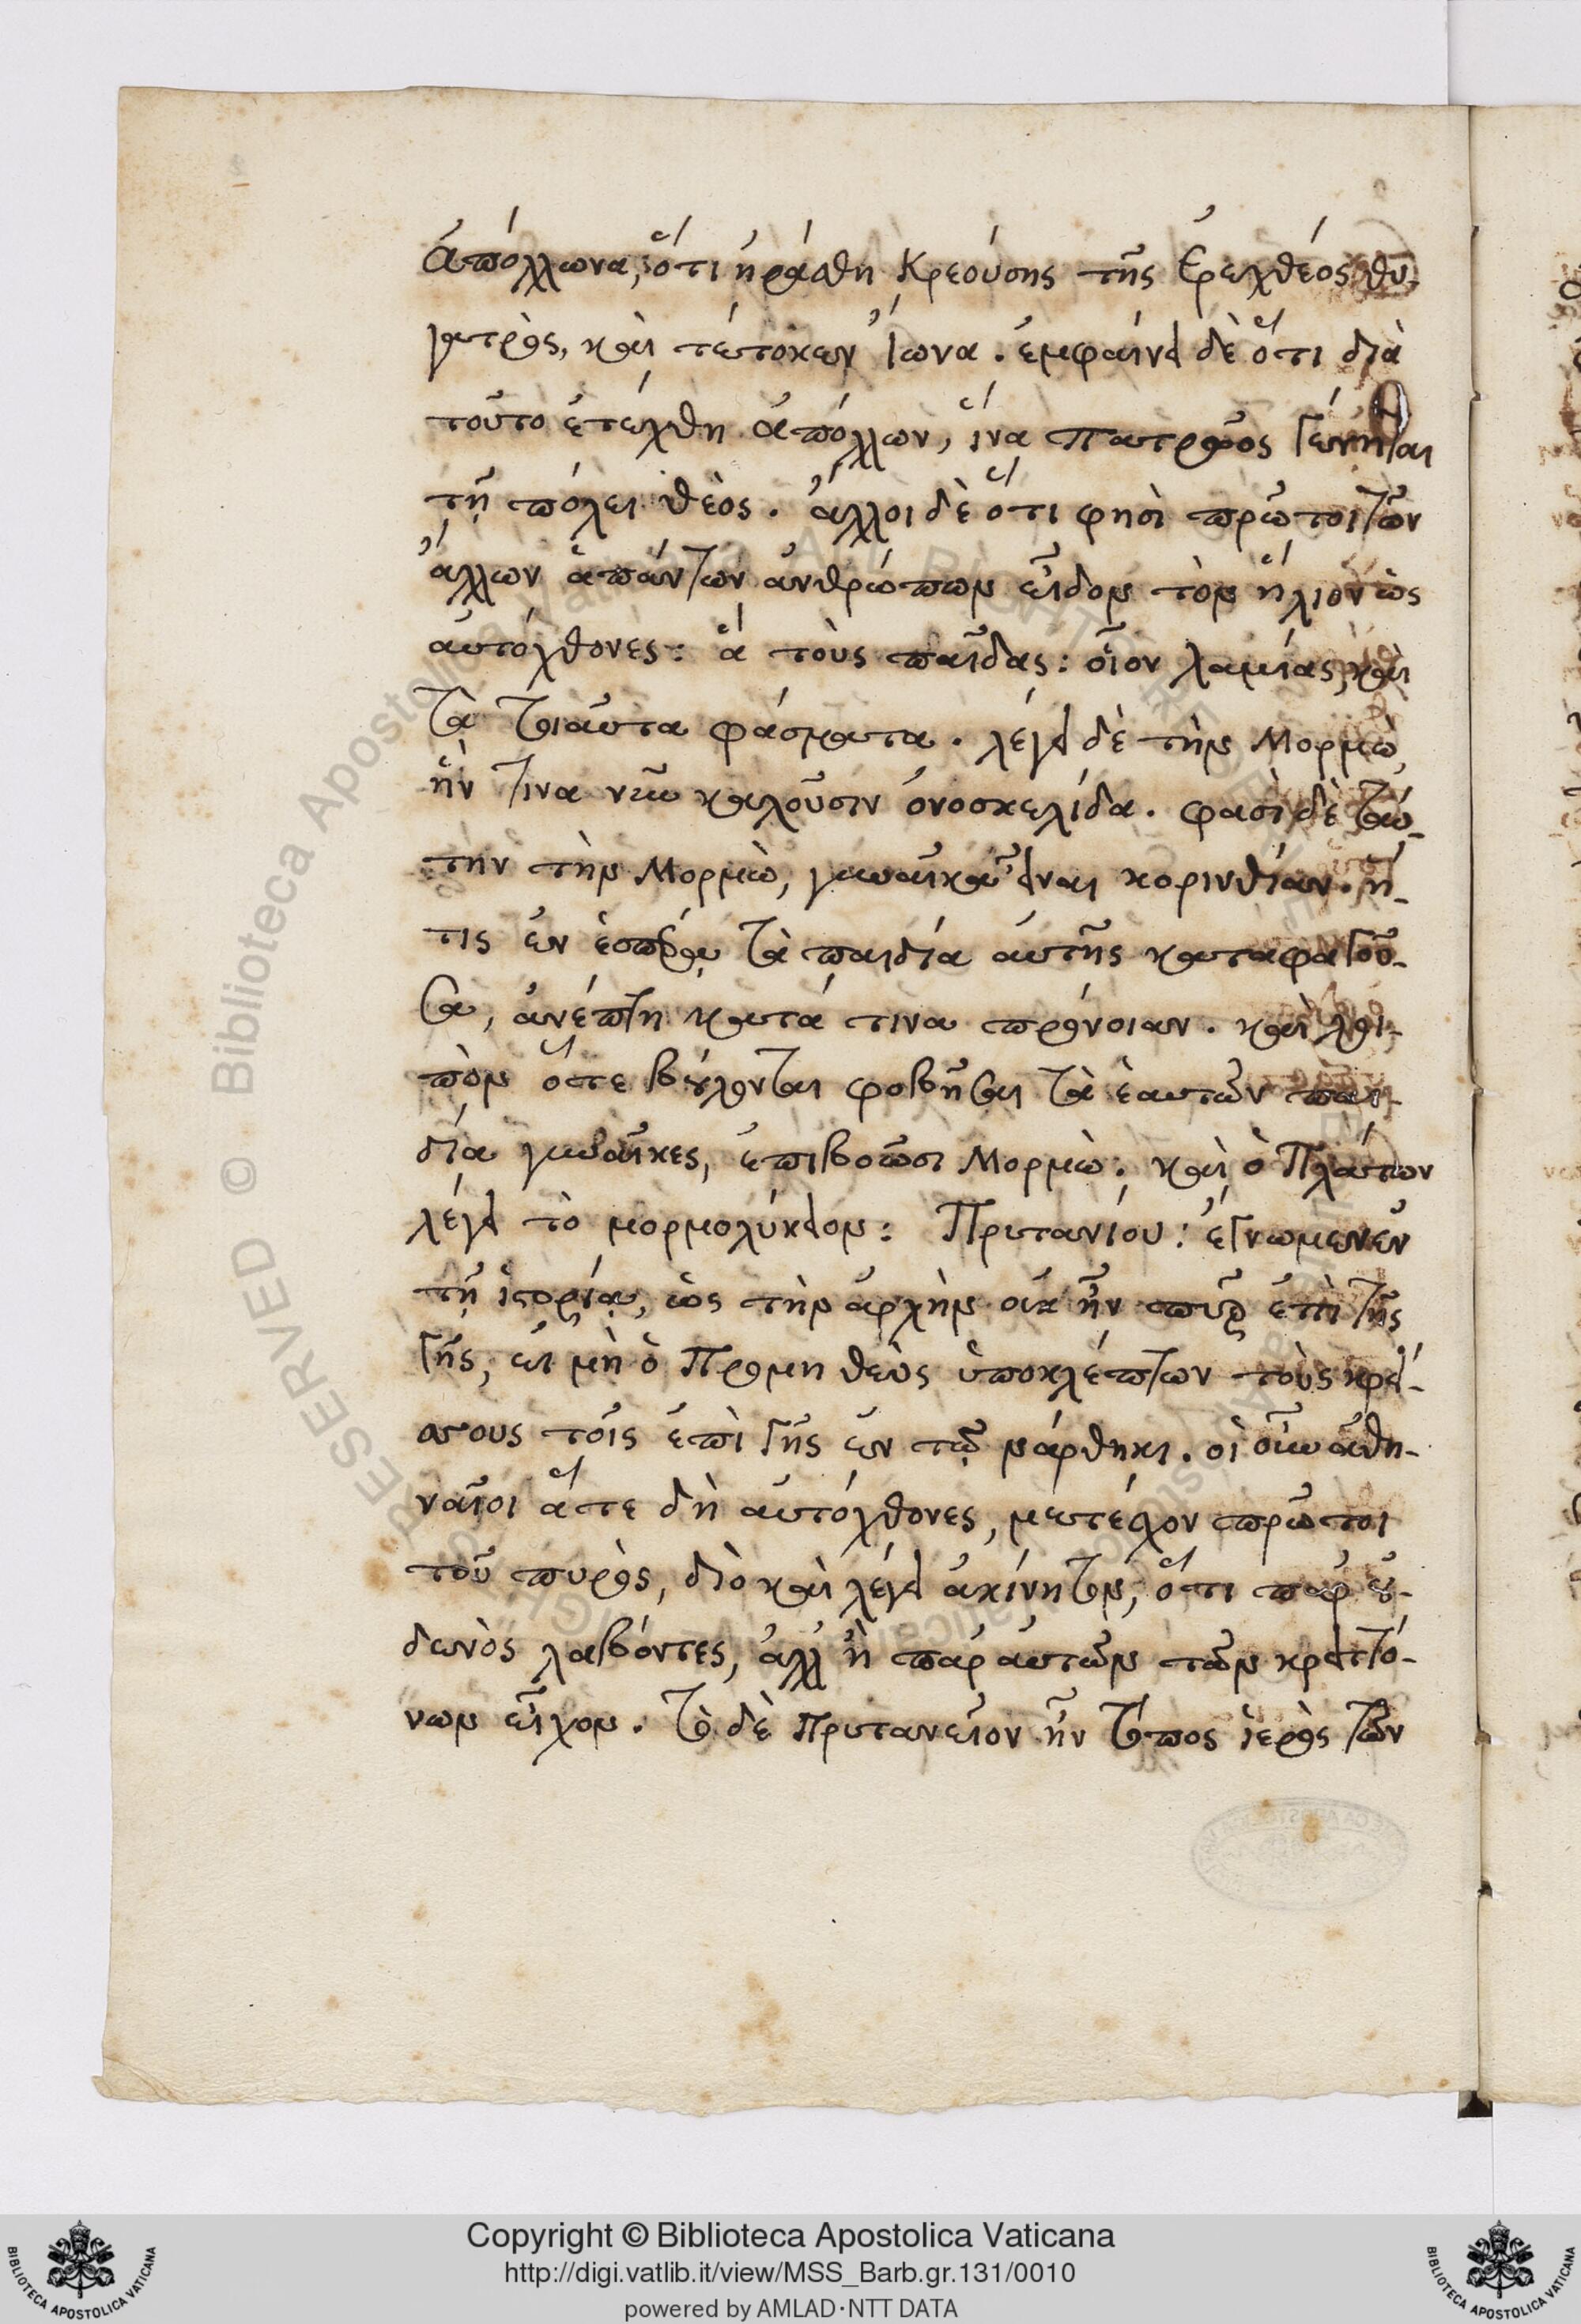 Ἀπόλλωνα, ὅτι ἠράσθη Κρεούσης τῆς Ἐρεχθέος θυ-
γατρὸς, καὶ τέτοκεν Ἴωνα. ἐμφαίνει δὲ ὅτι διὰ
τοῦτο ἐτέχθη Ἀπόλλων, ἵνα πατρῷος γένηται
τῇ πόλει θεὸς. ἄλλοι δὲ ὅτι φησὶ πρῶτοι τῶν
ἄλλων ἁπάντων ἀνθρώπων εἶδον τὸν ἥλιον ὡς
αὐτόχθονες: ἃ τοὺς παῖδας: οἷον λαμίας, καὶ
τὰ τοιαῦτα φάσματα. λέγει δὲ τὴν Μορμὼ,
ἥν τινα νῦν καλοῦσιν ὀνοσκελίδα. φασὶ δὲ ταύ-
την τὴν Μορμὼ, γυναῖκα εἶναι κορινθίαν. ἥ-
τις ἐν ἑσπέρᾳ τὰ παιδία αὐτῆς καταφαγοῦ-
σα, ἀνέπτη κατά τινα πρόνοιαν. καὶ λοι-
πὸν ὅτε βούλονται φοβῆσαι τὰ ἑαυτῶν παι-
δία γυναῖκες, ἐπιβοῶσι Μορμὼ. καὶ ὁ Πλάτων
λέγει τὸ μορμολύκειον: Πρυτανίου: ἔγνωμεν ἐν
τῇ ἱστορίᾳ, ὡς τὴν ἀρχὴν οὐκ ἦν πῦρ ἐπὶ τῆς
γῆς, εἰ μὴ ὁ Προμηθεὺς ὑποκλέπτων τοὺς κρεί-
σσους τοῖς ἐπὶ γῆς ἐν τῷ νάρθηκι. οἱ οὖν ἀθη-
ναῖοι ἅτε δὴ αὐτόχθονες, μετέσχον πρῶτοι
τοῦ πυρὸς, διὸ καὶ λέγει ἀκίνητον, ὅτι παρ' οὐ-
δενὸς λαβόντες, ἀλλ' ἢ παρ' αὐτῶν τῶν κρειττό-
νων εἶχον. τὸ δὲ Πρυτανεῖον ἦν τόπος ἱερὸς τῶν
Copyright © Biblioteca Apostolica Vaticana
http://digi.vatlib.it/view/MSS_Barb.gr.131/0010
powered by AMLAD·NTT DATA
BIBLIOTECA APOSTOLICA VATICANA
BIBLIOTECA APOSTOLICA VATICANA